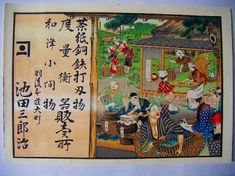 茶紙銅鉄打刃物
度量衡器販売所
和洋小間物
羽後本荘大町
池田三郎治